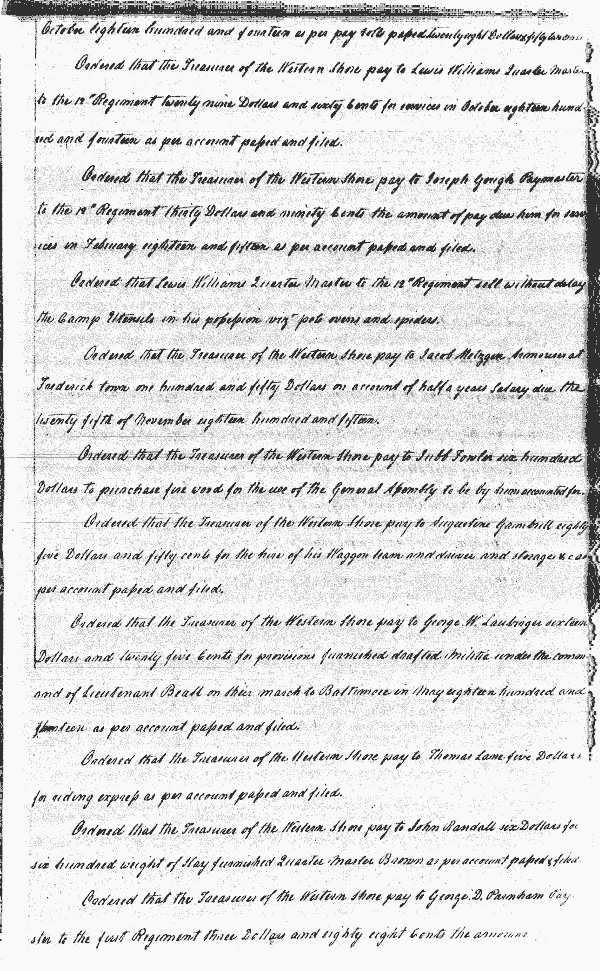 October eighteen hundred and fourteen as per pay rolls passed twenty eight Dollars & fifty two cents
Ordered that the Treasurer of the Western Shore pay to Lewis Williams Quarter Master
to the 12th Regiment twenty nine Dollars and sixty Cents for services in October eighteen hund-
red and fourteen as per account passed and filed.
Ordered that the Treasurer of the Western Shore pay to Joseph Gough Paymaster
to the 12th Regiment thirty Dollars and ninety Cents the amount of pay due him for serv
ices in Febuary eighteen and fifteen as per account passed and filed.
Ordered that Lewis Williams Quarter Master to the 12th Regiment sell without delay
the Camp Utensils in his possession vizt pots ovens and spiders.
Ordered that the Treasurer of the Western Shore pay to Jacob Metzger Armourer at
Frederick town one hundred and fifty Dollars on account of half a years Salary due the
twenty fifth of November eighteen hundred and fifteen.
Ordered that the Treasurer of the Western Shore pay to Jubb Fowler six hundred
Dollars to purchase fire wood for the use of the General Assembly to be by him accounted for.
Ordered that the Treasurer of the Western Shore pay to Augustine Gambrill eighty
five Dollars and fifty cents for the hire of his Waggon team and driver and storage &c as
per account passed and filed.
Ordered that the Treasurer of the Western Shore pay to George W. Laubinger sixteen
Dollars and twenty five Cents for provisions furnished drafted Militia under the comm
and of Lieutenant Beall on their march to Baltimore in May eighteen hundred and
as per account passed and filed.
Ordered that the Treasurer of the Western Shore pay to Thomas Lane five Dollars
for riding express as per account passed and filed.
Ordered that the Treasurer of the Western Shore pay to John Randall six Dollars for
six hundred weight of Hay furnished Quarter Master Brown as per account passed & filed
Ordered that the Treasurer of the Western Shore pay to George D. Parnham Pay
ster to the first Regiment three Dollars and eighty eight Cents the amount